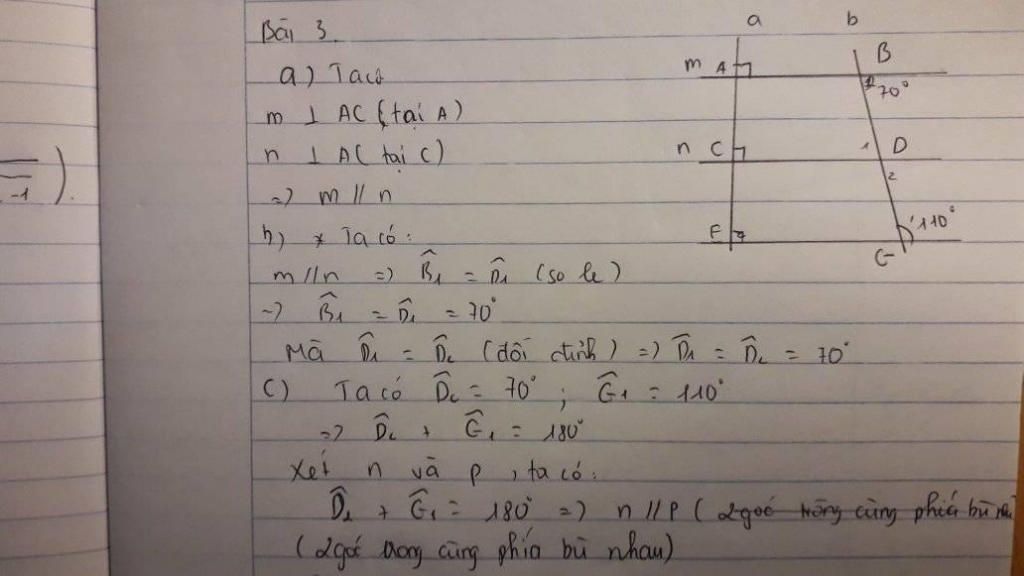 Bài 3.
a) Ta có
m ⊥ AC (tại A)
n ⊥ AC (tại C)
=> m // n
b) * Ta có:
m // n => B̂1 = D̂1 (so le)
=> B̂1 = D̂1 = 70°
Mà D̂1 = D̂2 (đối đỉnh) => D̂1 = D̂2 = 70°
C) Ta có D̂2 = 70° ; Ĝ1 = 110°
=> D̂2 + Ĝ1 = 180°
Xét n và p, ta có:
D̂2 + Ĝ1 = 180° => n // p ( 2 góc trong cùng phía bù
( 2 góc trong cùng phía bù nhau)
a b
m A B
70°
n C 1 D
2
E 1 110°
G
-1 ).